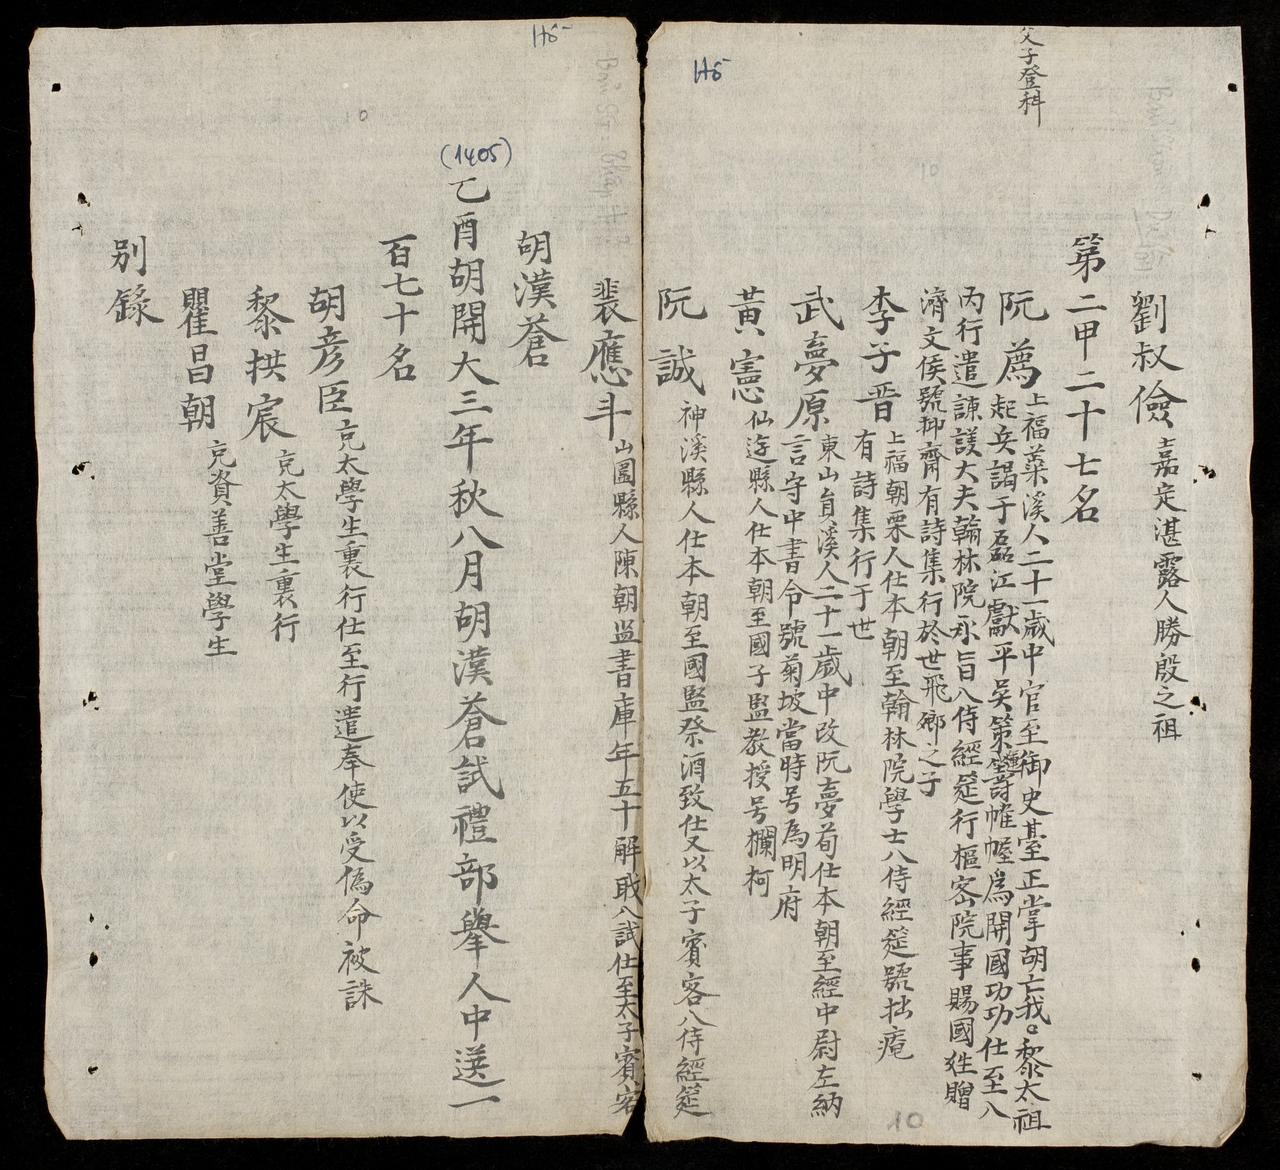 父子登科
劉叔儉 嘉定湛露人勝殷之祖
第二甲二十七名
阮薦 上福蘂溪人二十一歲中官至御史臺正掌胡亡我黎太祖
起兵謁于磊江獻平吳策籌帷幄爲開國功功仕至入
内行遣諫議大夫翰林院承旨入侍經筵行樞密院事賜國姓贈
濟文侯號抑齋有詩集行於世飛卿之子
李子晋 上福朝栗人仕本朝至翰林院學士入侍經筵號拙庵
有詩集行于世
武夢原 東山貟溪人二十一歲中改阮夢荀仕本朝至經中尉左納
言守中書令號菊坡當時号爲明府
黃憲 仙遊縣人仕本朝至國子監教授号欄柯
阮誠 神溪縣人仕本朝至國監祭酒致仕又以太子賓客入侍經筵
裴應斗 山圍縣人陳朝监書庫年五十解戢入試仕至太子賓客
Hồ
Hồ
胡漢蒼
(1405)
乙酉胡開大三年秋八月胡漢蒼試禮部舉人中選一
百七十名
胡彦臣 克太學生裏行仕至行遣奉使以受僞命被誅
黎拱宸 克太學生裏行
瞿昌朝 克資善堂學生
别錄
10
10
10